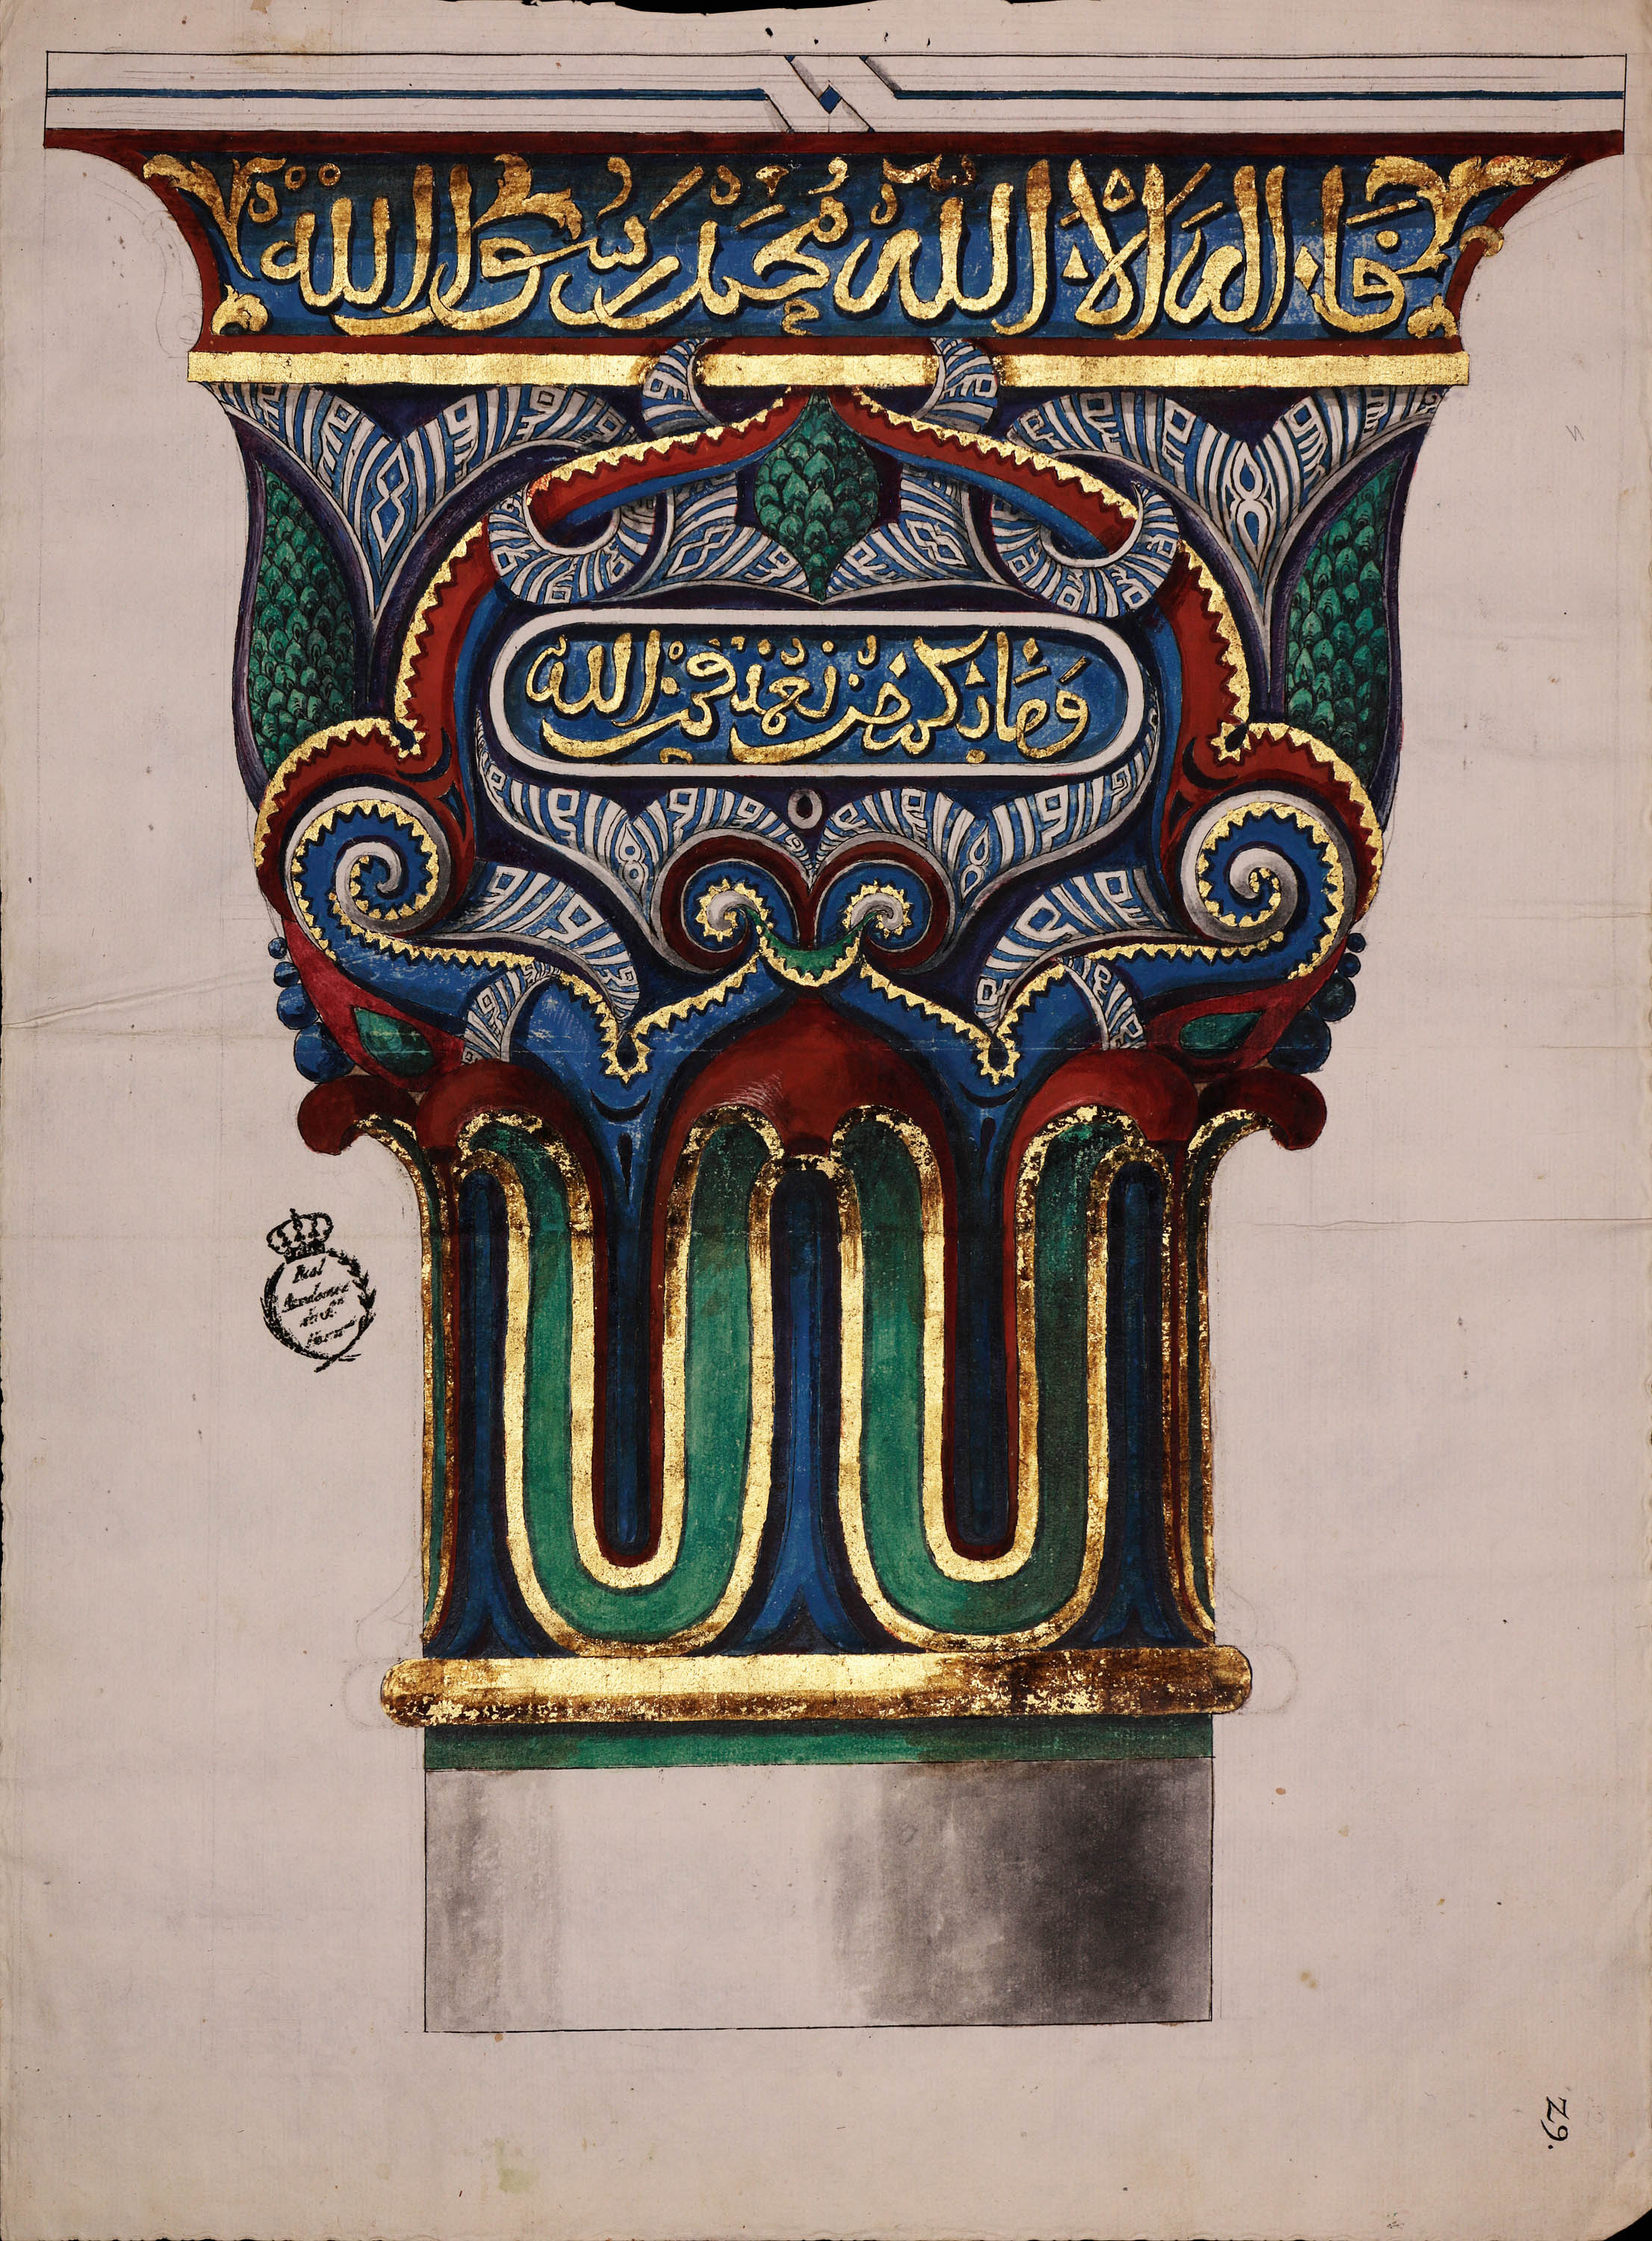 لا اله الا الله محمد رسول الله
وما بكم من نعمة فمن الله
Real
Academia
29.